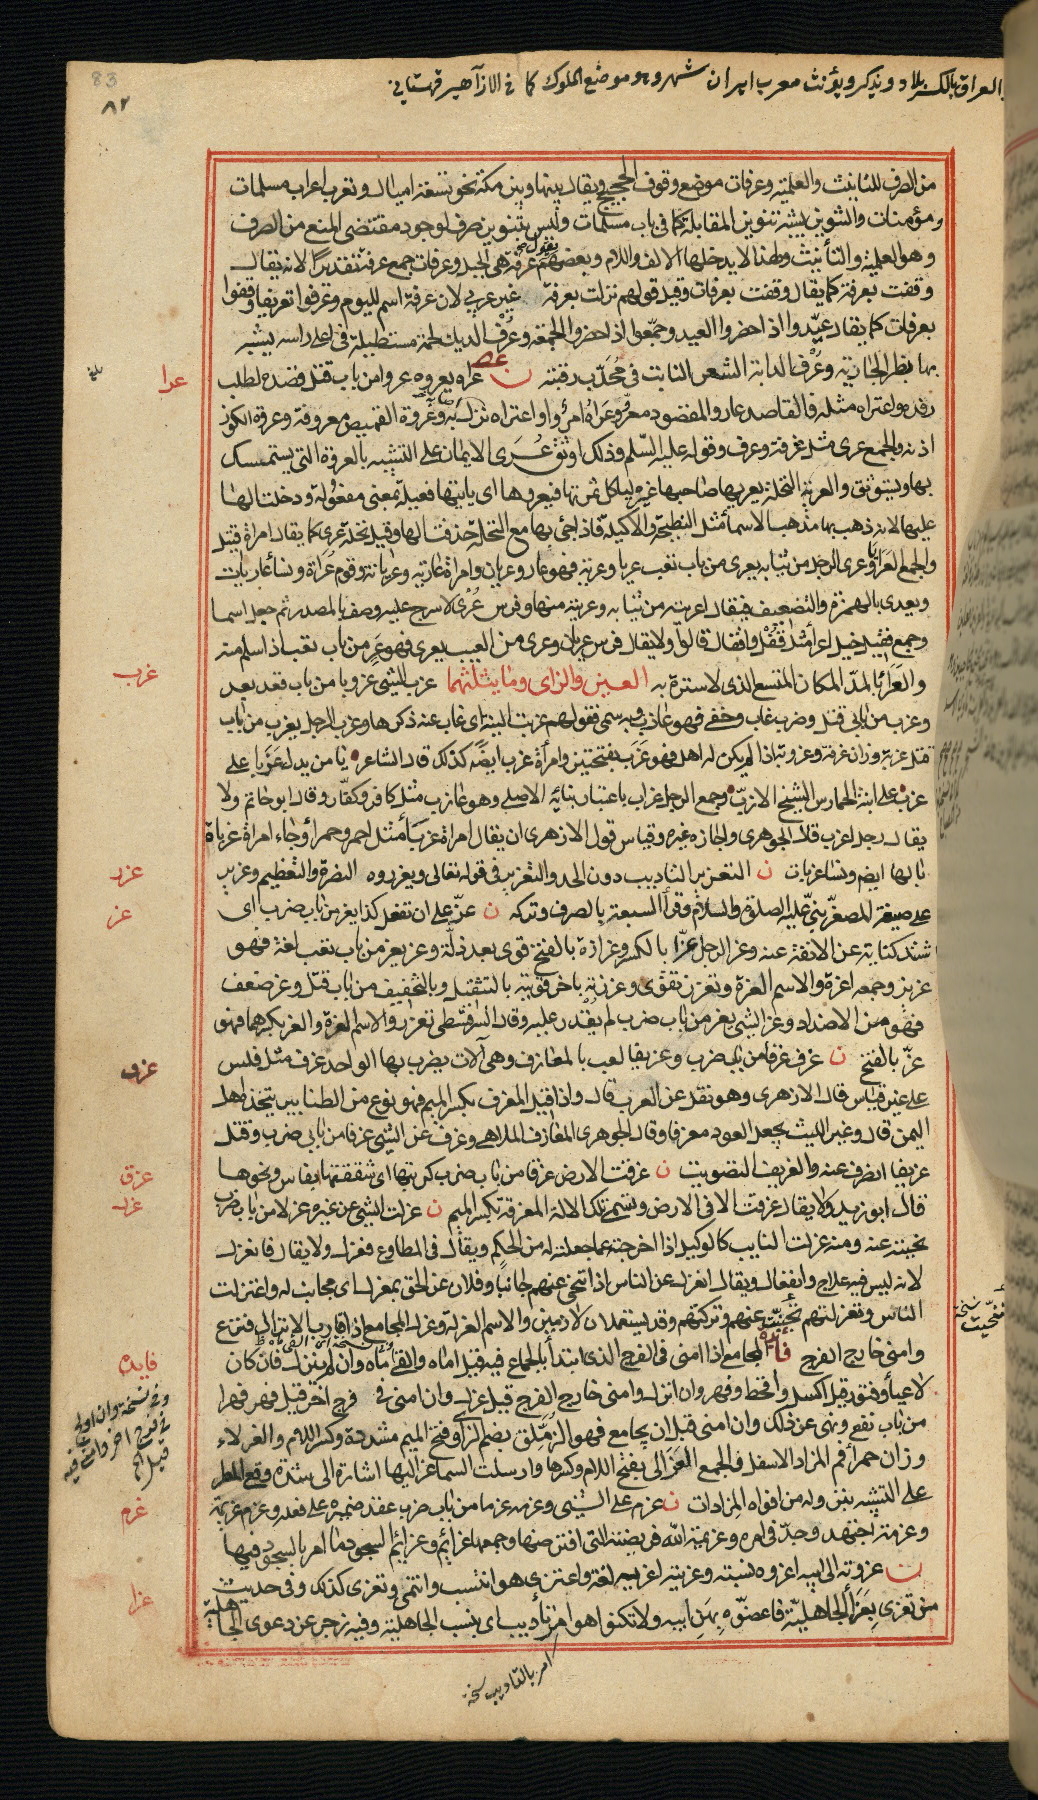 83
٨٢
العراق بالكسر بلاد ويذكر ويؤنث معرب ايران شهر وهو موضع الملوك كما في الازاهير قهستاني
من الصرف للتانيث والعلمية وعرفات موضع وقوف الحجيج ويقال بينها وبين مكة نحو تسعة اميال وتعرب اعراب مسلمات
ومؤمنات والتنوين يشبه تنوين المقابلة كما في باب مسلمات وليس بتنوين صرف لوجود مقتضى المنع من الصرف
وهو العلمية والتأنيث ولهذا لا يدخلها الالف واللام وبعضهم يقول عرفة هي الجبل وعرفات جمع عرفة تقديرا لانه يقال
وقفت بعرفة كما يقال وقفت بعرفات وقيل قولهم نزلت بعرفة غير عربي لان عرفة اسم لليوم وعرفوا تعريفا وقفوا
بعرفات كما يقال عيّدوا اذا حضروا العيد وجمّعوا اذا حضروا الجمعة وعرف الديك لحمة مستطيلة في اعلى راسه يشبه
بها بظر الجارية وعُرف الدابة الشعر النابت في محدّب رقبته ن عراه يعروه عروا من باب قتل قصده لطلب
رفده واعتراه مثله فالقاصد عار والمقصود معرو وعراه امر واعتراه نزل به وعروة القميص معروفة وعروة الكوز
اذنه والجمع عرى مثل غرفة وغرف وقوله عليه السلم وذلك اوثق عُرَى الايمان على التشبيه بالعروة التي يستمسك
بها ويستوثق والعرية النخلة يعريها صاحبها غيره لياكل ثمرتها فيعروها اى ياتيها فعيلة بمعنى مفعولة ودخلت الها
عليها لانه ذهب بها مذهب الاسما مثل النطيحة والاكيلة فاذا جئ بها مع النخلة حذفت الها وقيل نخلة عرى كما يقال امراة قتيل
والجمع العرايا وعرى الرجل من ثيابه يعرى من باب تعب عريا وعرية فهو عار وعريان وامراة عارية وعريانة وقوم عراة ونسا عاريات
ويعدى بالهمزة والتضعيف فيقال اعريته من ثيابه وعريته منها وفرس عُرْى لا سرج عليه وصف بالمصدر ثم جعل اسما
وجمع فقيل خيل اعرا مثل قفل واقفال قالوا ولا يقال فرس عريان وعرى من العيب يعرى فهو عر من باب تعب اذا سلم منه
والعراء بالمد المكان المتسع الذى لا سترة به العين والزاى وما يثلثهما عزب الشئ عزوبا من باب قعد بعد
وعزب من بابى قتل وضرب غاب وخفى فهو عازب وبه سمى فقولهم عزبت النية اى غاب عنه ذكرها وعزب الرجل يعزب من باب
قتل عزبة وزان غرفة وعزوبة اذا لم يكن له اهل فهو عَزَب بفتحتين وامراة عزب ايضا كذلك قال الشاعر يا من يدل عَزَبا على
عزب على ابنة الحمارس الشيخ الازبّ وجمع الرجل عزاب باعتبار بنائه الاصلى وهو عازب مثل كافر وكفّار وقال ابو حاتم ولا
يقال رجل اعزب قال الجوهرى واجازه غيره وقياس قول الازهرى ان يقال امراة عزبا مثل احمر وحمرا وجاء امراة عزباة
بالها ايضا ونسا عزبات ن التعزير التاديب دون الحد والتعزير في قوله تعالى ويعزروه النصرة والتعظيم وعزير
على صيغة المصغر نبىّ عليه الصلوة والسلام وقرأ السبعة بالصرف وتركه ن عزّ على ان تفعل كذا يعز من باب ضرب اى
شتد كناية عن الانفة عنه وعز الرجل عزّا بالكسر وعزازة بالفتح قوى بعد ذلّة وعز يعز من باب تعب لغة فهو
عزيز وجمعه اعزة والاسم العزة وتعزز تقوّى وعززته باخر قويته بالتثقيل وبالتخفيف من باب قتل وعز ضعف
فهو من الاضداد وعز الشئ يعز من باب ضرب لم يقدر عليه وقال السرقسطى تعزز والاسم العزة والعز بكسرهما فهو
عزّ بالفتح ن عزف عزفا من باب ضرب وعزيفا لعب بالمعازف وهى آلات يضرب بها الواحد عزف مثل فلس
على غير قياس قال الازهرى وهو نقل عن العرب قال واذا قيل المعزف بكسر الميم فهو نوع من الطنابير يتخذه اهل
اليمن قال وغير الليث يجعل العود معزفا وقال الجوهرى المعازف الملاهى وعزف عن الشئ عزفا من بابى ضرب وقتل
عزيفا انصرف عنه والعزيف التصويت ن عزقت الارض عزقا من باب ضرب كربتها اى شققتها بفاس ونحوها
قال ابو زيد ولا يقال عزقت الا في الارض وتسمى تلك الالة المعزقة بكسر الميم ن عزلت الشئ عن غيره عزلا من باب ضرب
نحيته عنه ومنه عزلت النايب كالوكيل اذا اخرجته عما جعلت له من الحكم ويقال في المطاوع فعزل ولا يقال فانعزل
لانه ليس فيه علاج وانفعال ويقال انعزل عن الناس اذا تنحى عنهم جانبا وفلان عن الحق بمعزل اى مجانب له واعتزلت
الناس وتعزلتهم تجنبت عنهم وتركتهم وقد يستعملان لازمين والاسم العزلة وعزل المجامع اذا قارب الانزال فنزع
وامنى خارج الفرج فائدة المجامع اذا امنى في الفرج الذى ابتدأ بالجماع فيه قيل اماه والقى ماه وان لم ينزل فان كان
لاعيا وفتور قيل اكسل واقحط وفهر وان انزل وامنى خارج الفرج قيل عزل وان امنى في فرج اخر قيل فهر فهرا
من باب نفع ونهى عن ذلك وان امنى قبل ان يجامع فهو الزُمّلِق بضم الزاى وفتح الميم مشددة وكسر اللام والعزلاء
وزان حمرا فم المزادة الاسفل والجمع العَزَالى بفتح اللام وكسرها وارسلت السما عزاليها اشارة الى شدة وقع المطر
على التشبيه بنزوله من افواه المزادات ن عزم على الشئ وعزمه عزما من باب ضرب عقد ضميره على فعله وعزم عزيمة
وعزمة اجتهد وجدّ في امره وعزيمة الله فريضته التى افترضها وجمعها عزائم وعزائم السجود ما امر بالسجود فيها
ن عزوته الى ابيه اعزوه نسبته وعزيته اعزيه لغة واعتزى هو انتسب وانتمى وتعزى كذلك وفى حديث
من تعزى بعَزَا الجاهلية فاعضّوه بهَنِ ابيه ولا تكنوا هو امر تأديب اى بنسب الجاهلية وفيه زجر عن دعوى الجاهلية
عرا
عزب
عزر
عز
عزف
عزق
عزل
فايده
وفى نسخة وان اولج
في فرج اخر وامنى فيه
قيل
عزم
عزا
تنحيت نسخة
امر بالتاديب نسخة